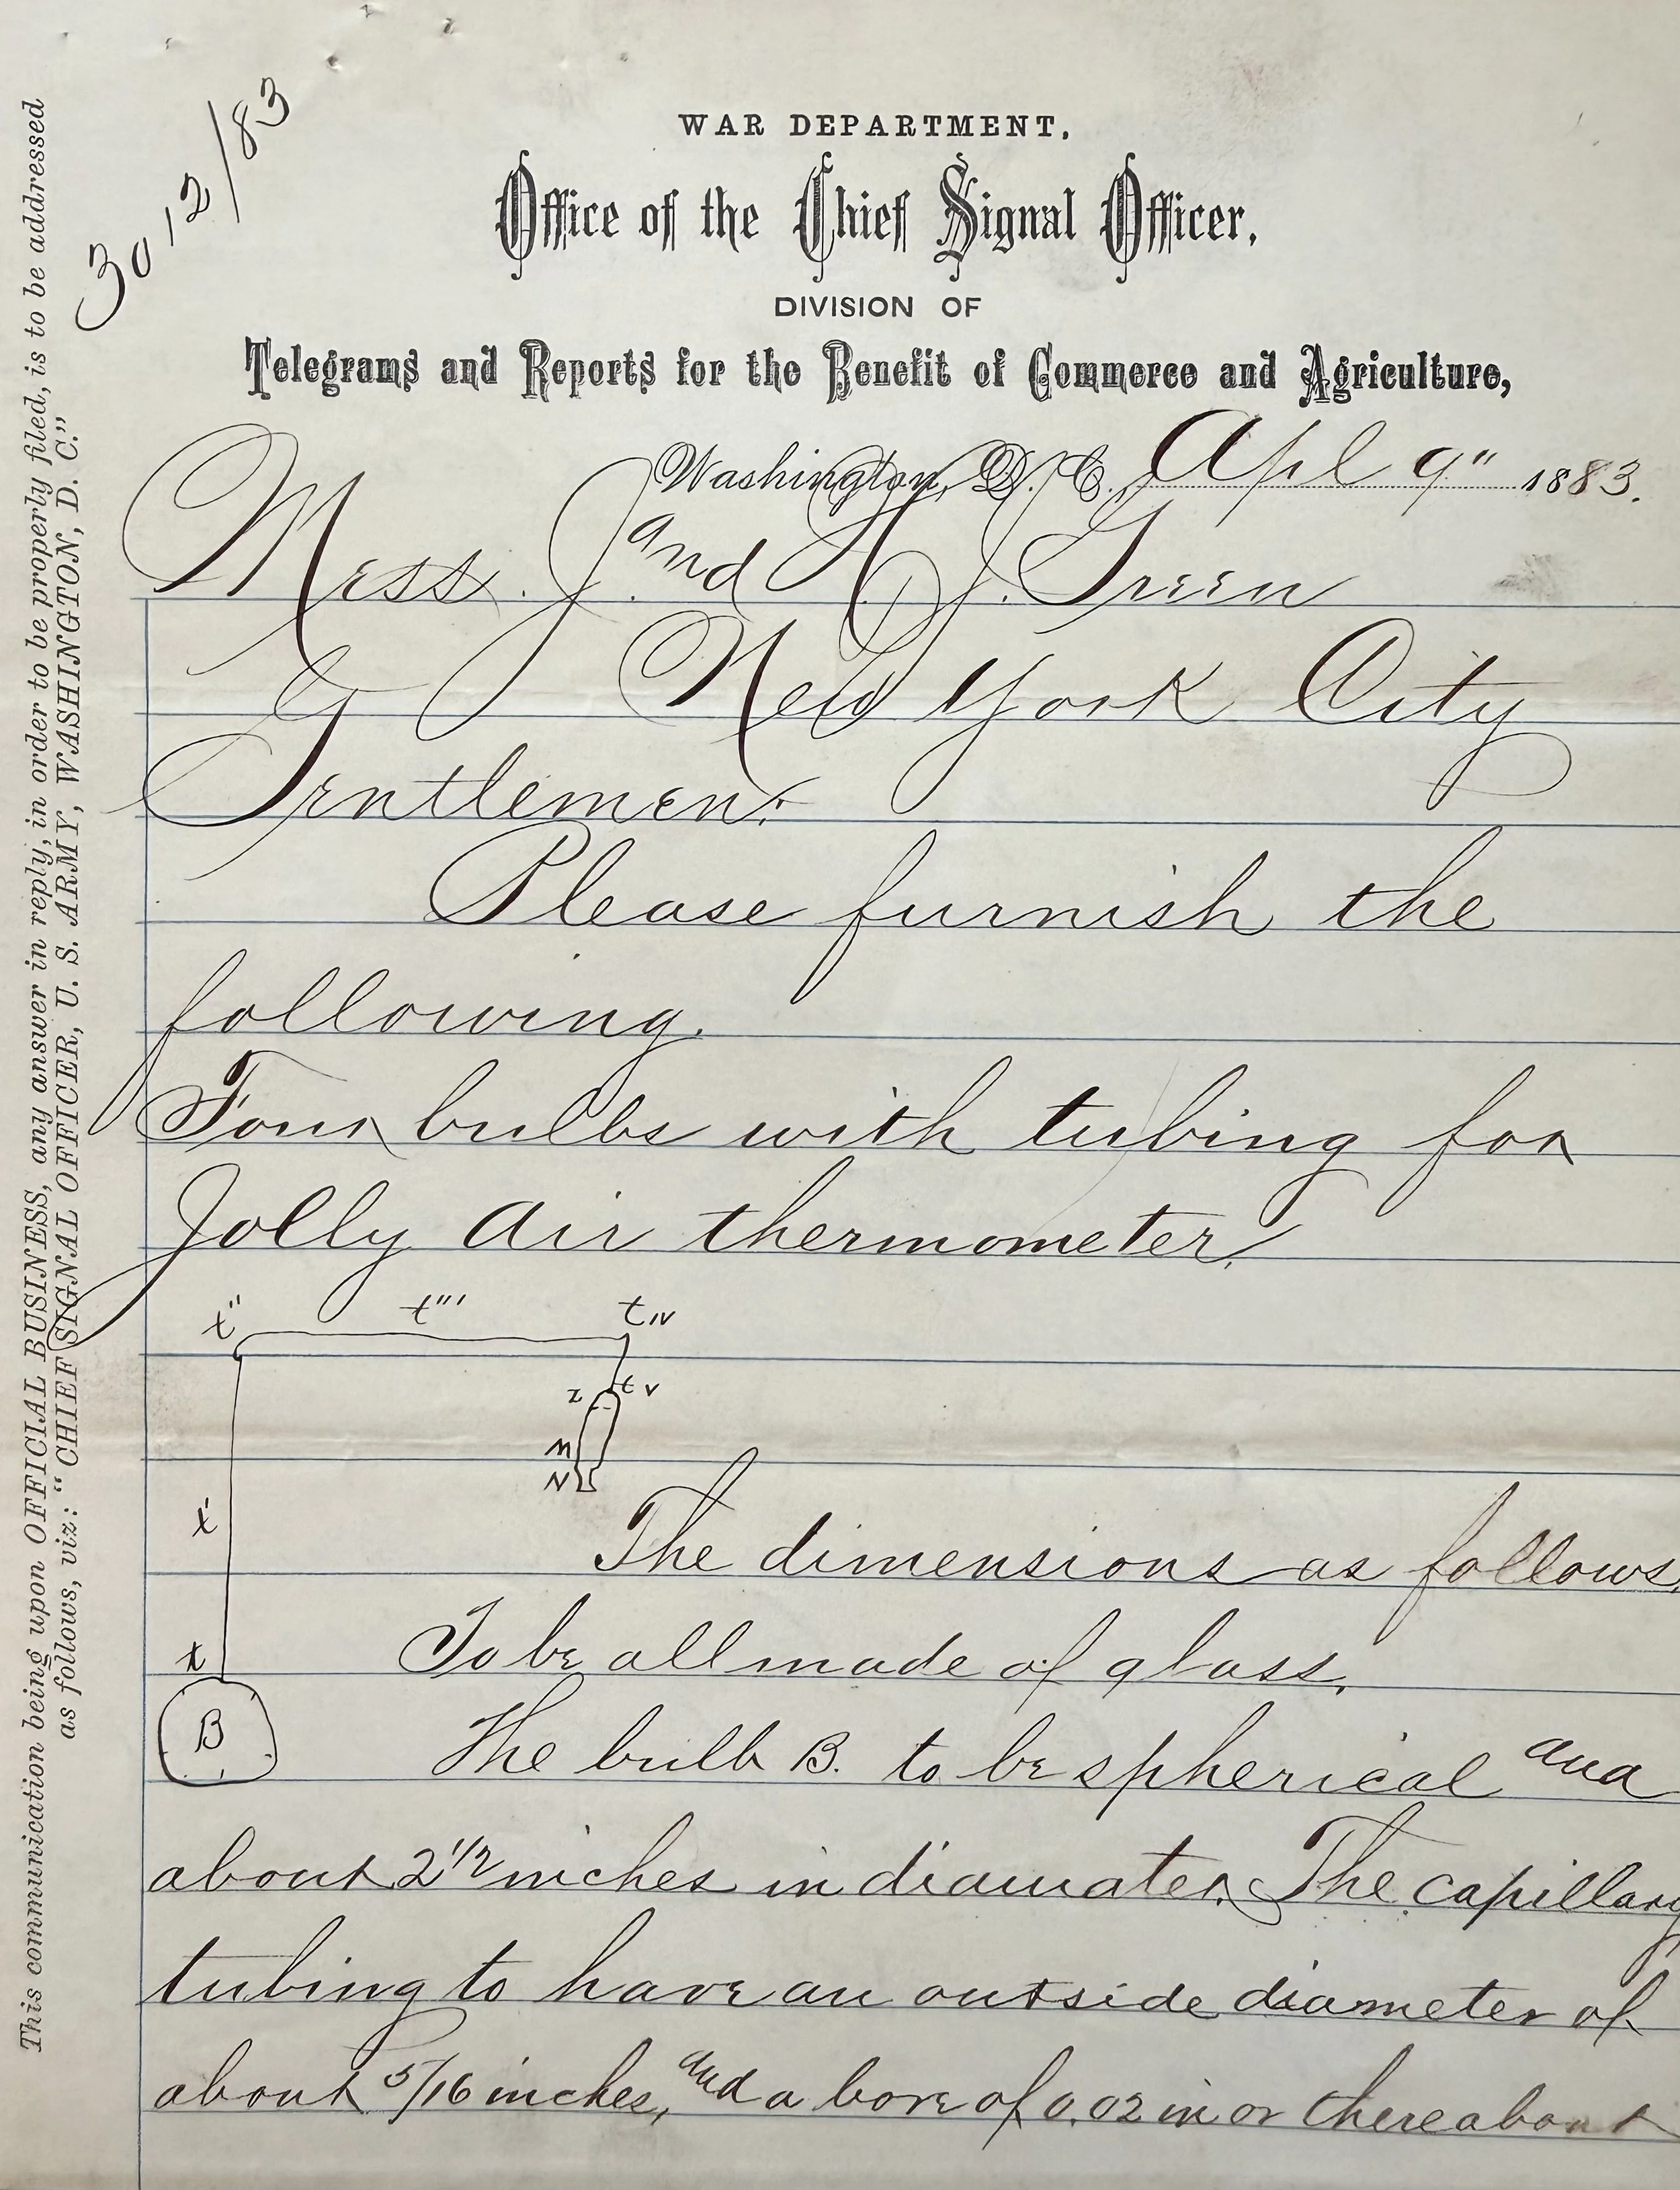 3012/83
WAR DEPARTMENT,
Office of the Chief Signal Officer,
DIVISION OF
Telegrams and Reports for the Benefit of Commerce and Agriculture,
Washington, D. C., Apl 9" 1883.
Mess. J. and H. J. Green
New York City
Gentlemen:
Please furnish the
following.
Four bulbs with tubing for
Jolly Air thermometer.
t" t''' t IV
z t v
M
N
t'
The dimensions as follows.
t To be all made of glass.
B The bulb B. to be spherical and
about 2 1/2 inches in diamater. The capillary
tubing to have an outside diameter of
about 5/16 inches, and a bore of 0.02 in or thereabout
This communication being upon OFFICIAL BUSINESS, any answer in reply, in order to be properly filed, is to be addressed
as follows, viz: "CHIEF SIGNAL OFFICER, U. S. ARMY, WASHINGTON, D. C."